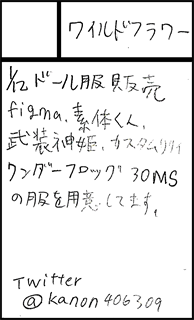 ワイルドフラワー
1/12ドール服販売
figma、素体くん、
武装神姫、カスタムリリィ
ワンダーフロッグ 30MS
の服を用意してます。
Twitter
@kanon406309